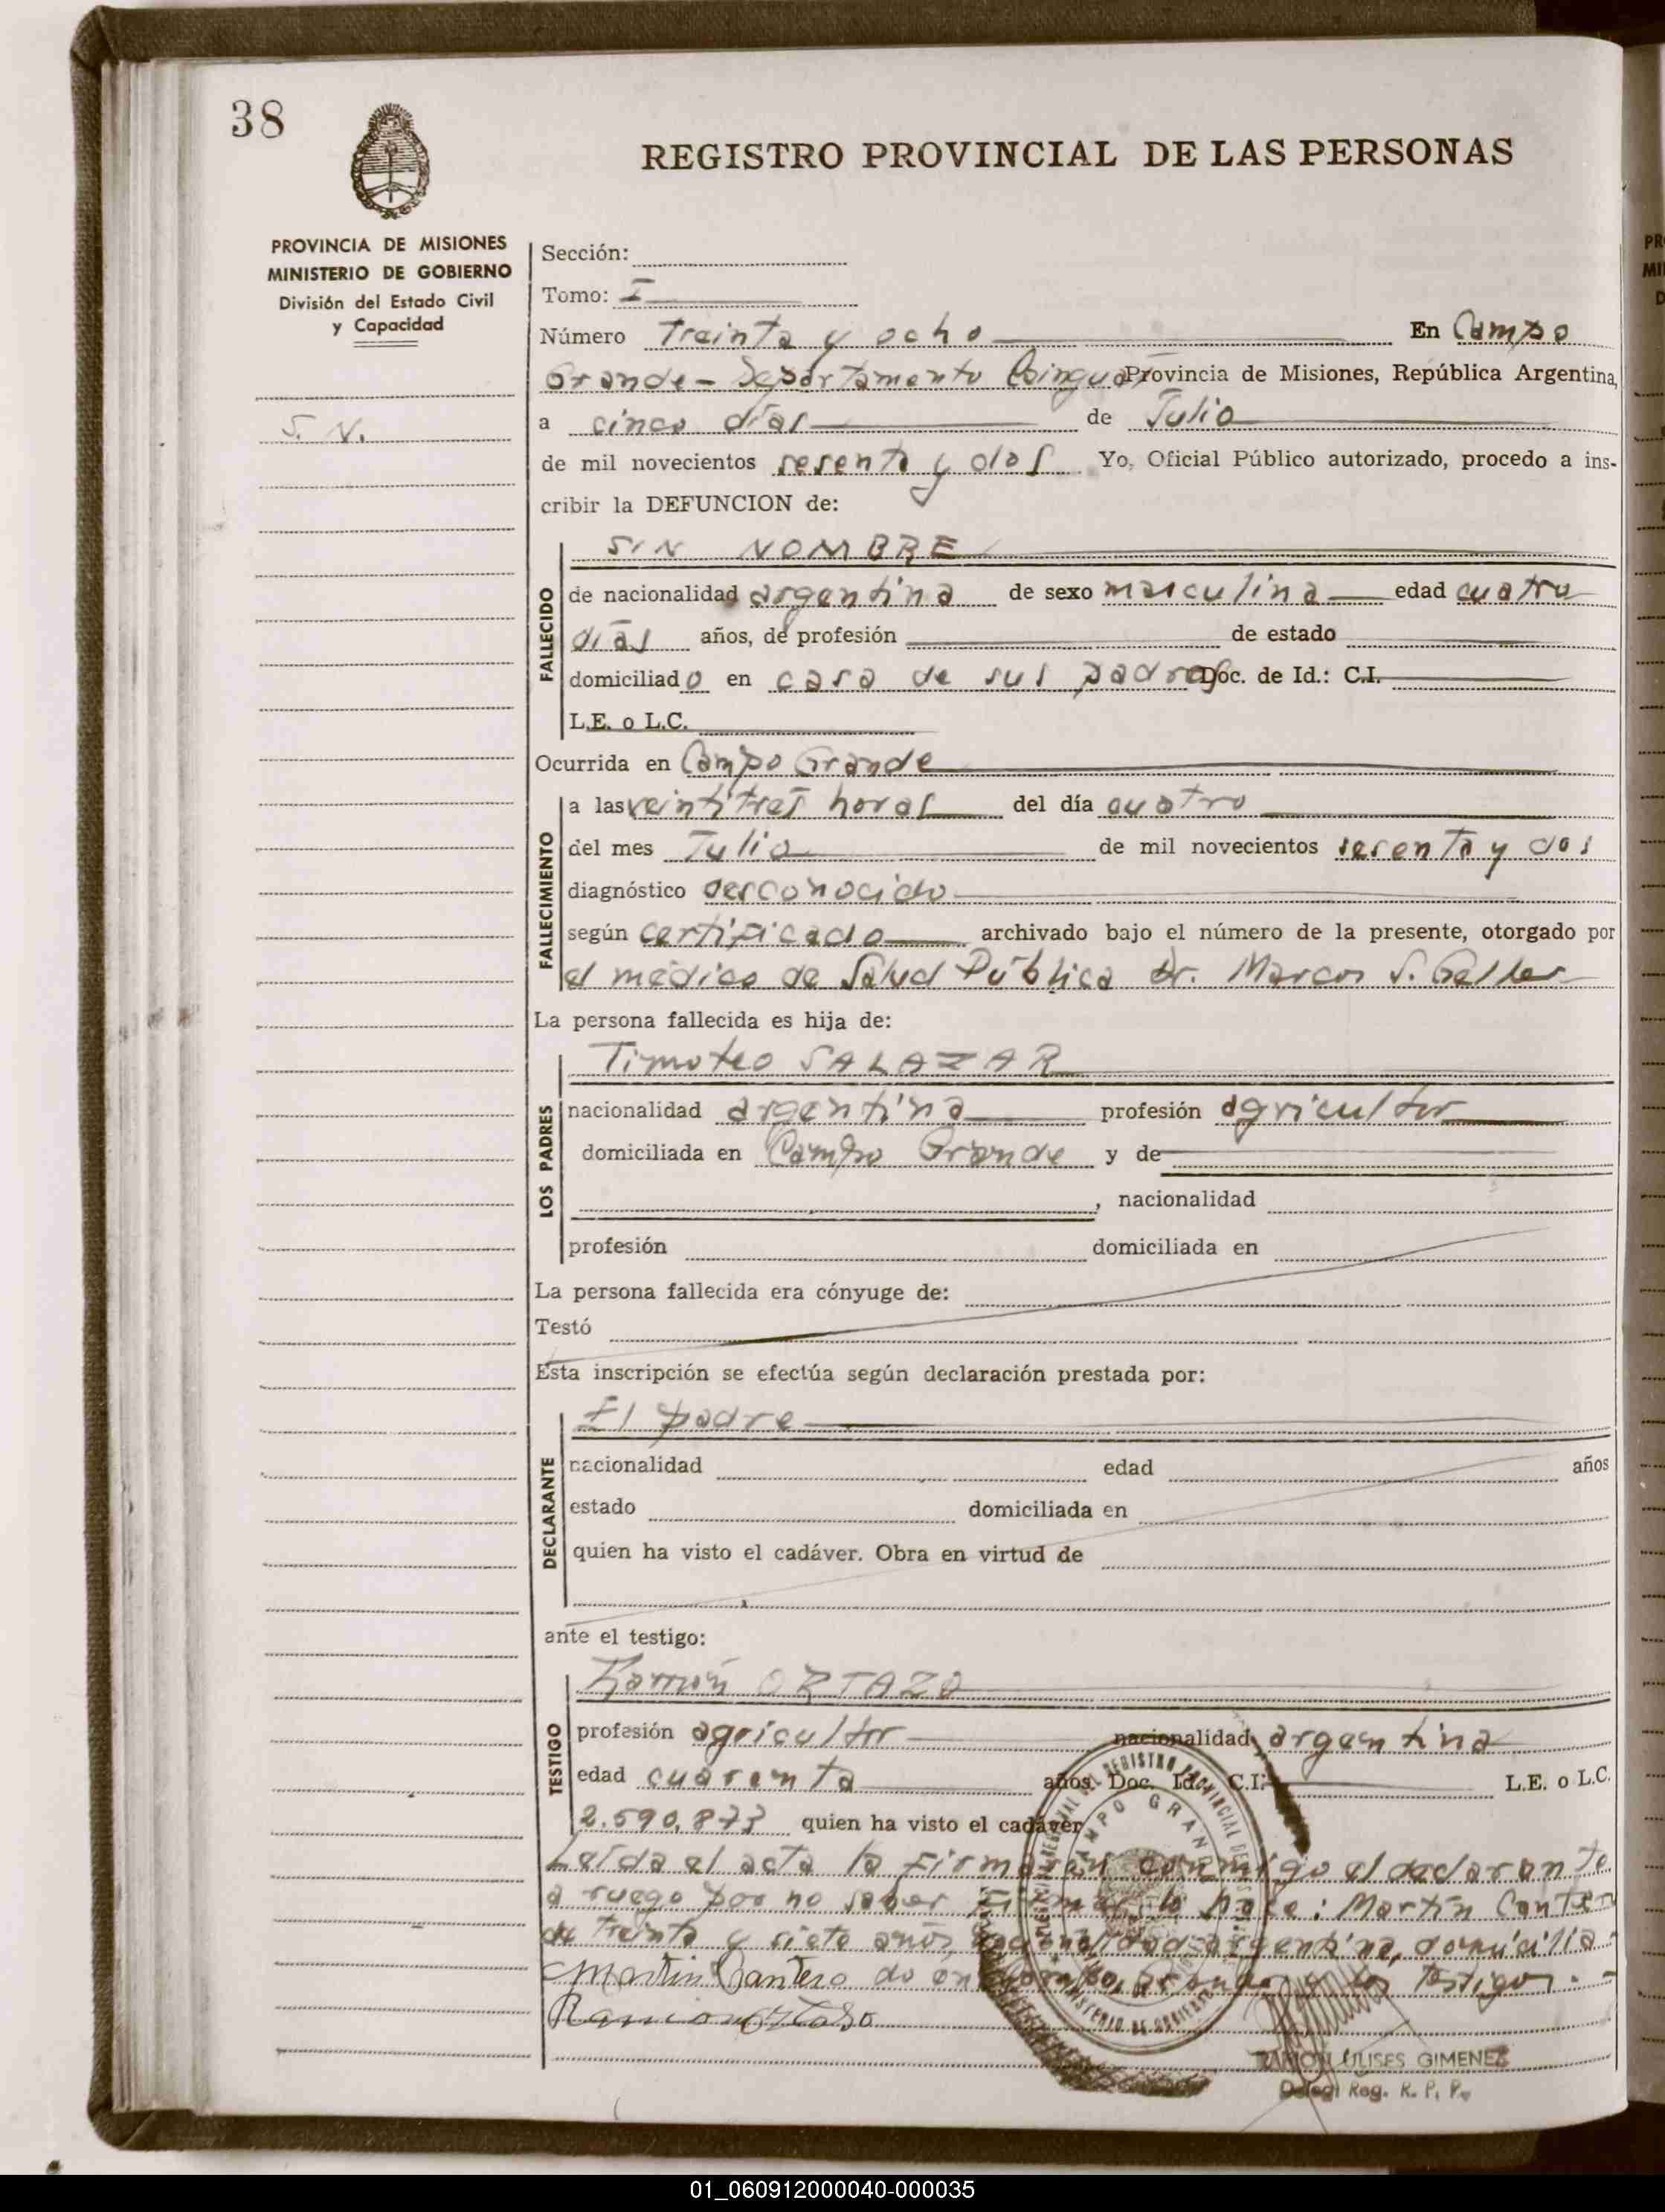 38
REGISTRO PROVINCIAL DE LAS PERSONAS
PROVINCIA DE MISIONES
MINISTERIO DE GOBIERNO
División del Estado Civil
y Capacidad
S. N.
Sección:
Tomo: I
Número Treinta y ocho En Campo
Grande - Departamento Provincia de Misiones, República Argentina,
a cinco días de Julio
de mil novecientos sesenta y dos Yo, Oficial Público autorizado, procedo a ins-
cribir la DEFUNCION de:
FALLECIDO
SIN NOMBRE
de nacionalidad argentina de sexo masculina edad cuatro
días años, de profesión de estado
domiciliado en casa de sus padres Doc. de Id.: C.I.
L.E. o L.C.
Ocurrida en Campo Grande
FALLECIMIENTO
a las veintitres horas del día cuatro
del mes Julio de mil novecientos sesenta y dos
diagnóstico desconocido
según certificado archivado bajo el número de la presente, otorgado por
el médico de Salud Pública Dr. Marcos S. Geller
La persona fallecida es hija de:
LOS PADRES
Timoteo SALAZAR
nacionalidad argentina profesión agricultor
domiciliada en Campo Grande y de
, nacionalidad
profesión domiciliada en
La persona fallecida era cónyuge de:
Testó
Esta inscripción se efectúa según declaración prestada por:
DECLARANTE
El padre
nacionalidad edad años
estado domiciliada en
quien ha visto el cadáver. Obra en virtud de
ante el testigo:
TESTIGO
Ramón ORTAZO
profesión agricultor nacionalidad argentina
edad cuarenta años. Doc. Id.: C.I. L.E. o L.C.
2.590.873 quien ha visto el cadáver
Leída el acta la firmarán conmigo el declarante
a ruego por no saber firmar lo hace: Martín Cantero
de treinta y siete años, nacionalidad argentina, domicilia-
Martin Cantero do en Campo Grande y los testigos. -
Ramon Ortaso
RAMON ULISES GIMENEZ
Deleg. Reg. R. P. P.
01_060912000040-000035